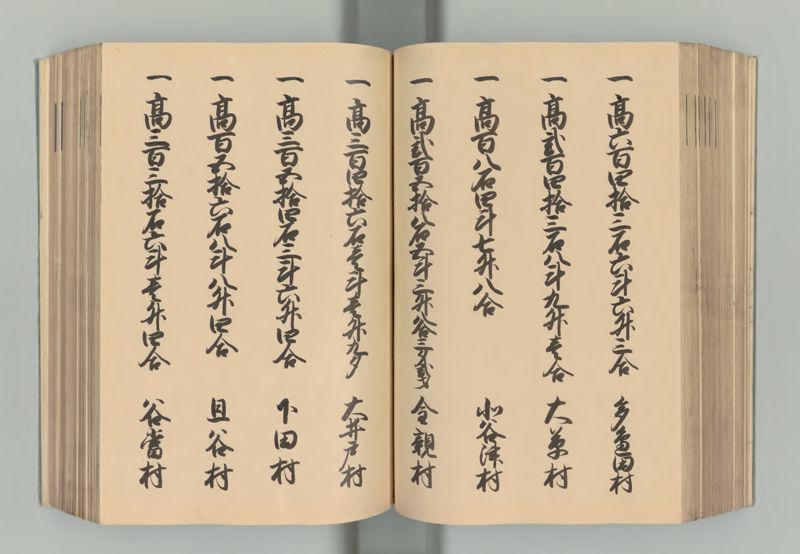 一高六百四拾三石六斗六升三合 多亀田村
一高弐百四拾三石八斗九升壱合 大草村
一高百八石四斗七升八合 北谷津村
一高弐百五拾八石五斗三升八合三夕弐才 令親村
一高三百四拾六石壱斗壱升九夕 大井戸村
一高三百五拾四石三斗六升四合 下田村
一高百五拾六石八斗八升四合 旦谷村
一高三百三拾石六斗壱升四合 谷當村